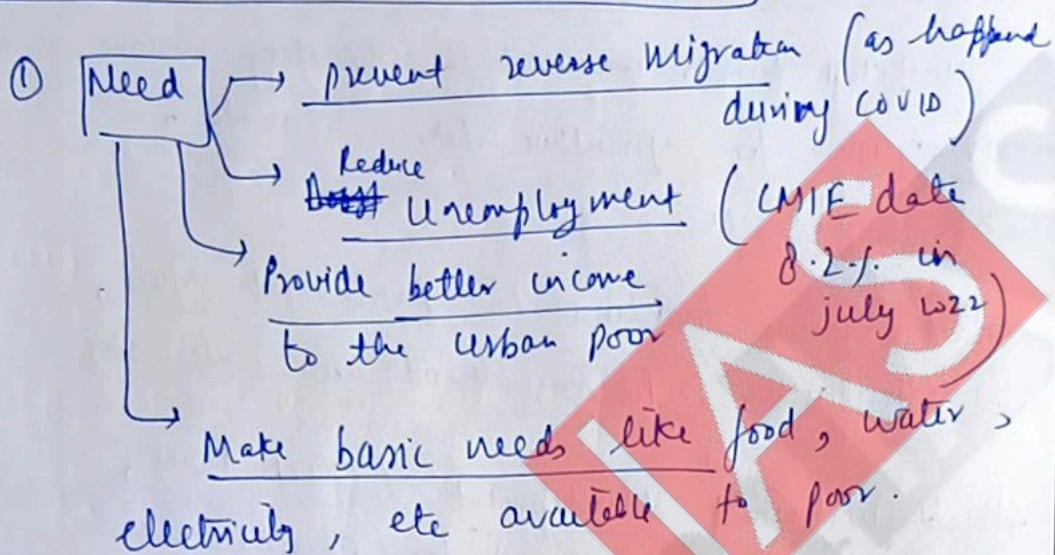 ① Need → prevent reverse migration (as happend
during COVID)
→ Reduce Unemployment (CMIE data
8.2% in
july 2022)
→ Provide better income
to the urban poor
→ Make basic needs like food, water,
electricity, etc available to poor.
IAS